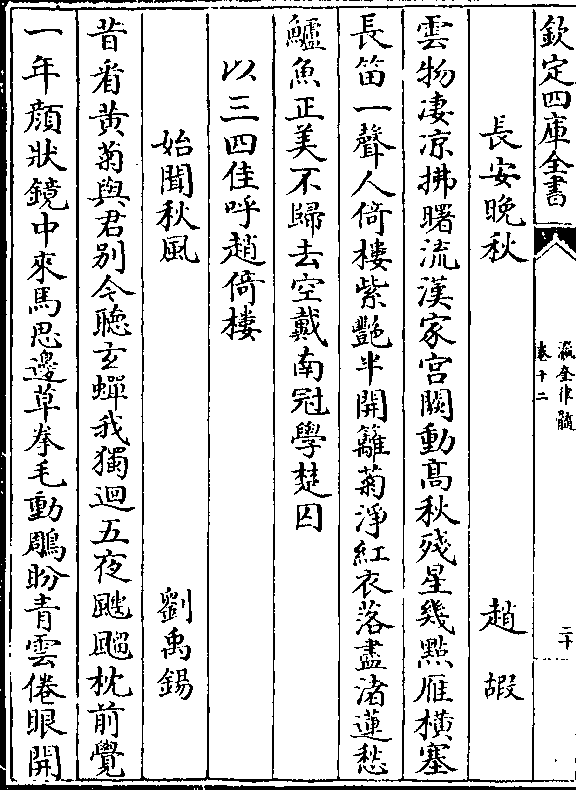 欽定四庫全書
瀛奎律髓
卷十二
二十
長安晚秋 趙嘏
雲物淒凉拂曙流漢家宫闕動髙秋殘星幾㸃雁横塞
長笛一聲人倚樓紫艷半開籬菊淨紅衣落盡渚蓮愁
鱸魚正美不歸去空戴南冠學楚囚
以三四佳呼趙倚樓
始聞秋風 劉禹錫
昔看黄菊與君别今聽玄蟬我獨迴五夜颼飀枕前覺
一年顔狀鏡中來馬思邊草拳毛動鵰盼青雲倦眼開